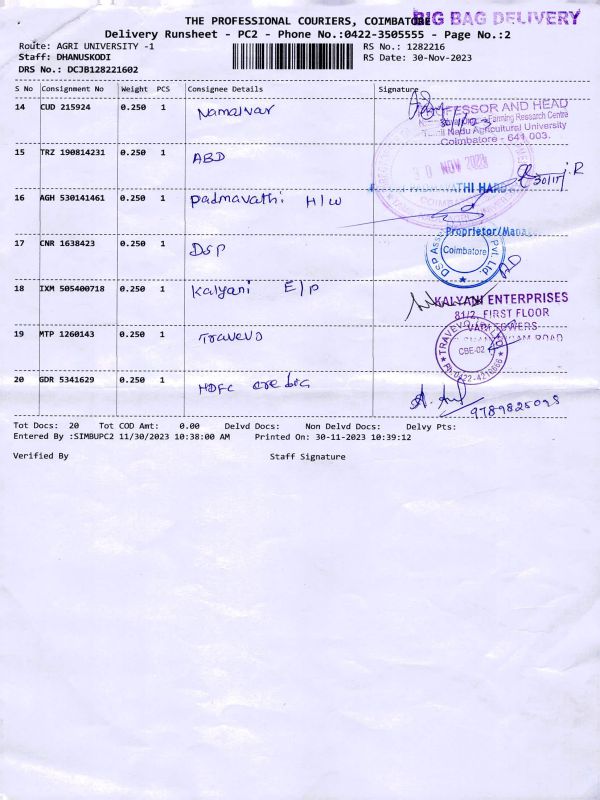 THE PROFESSIONAL COURIERS, COIMBATORE
BIG BAG DELIVERY
Delivery Runsheet - PC2 - Phone No.:0422-3505555 - Page No.:2
Route: AGRI UNIVERSITY -1
RS No.: 1282216
Staff: DHANUSKODI
RS Date: 30-Nov-2023
DRS No.: DCJB128221602
S No Consignment No Weight PCS Consignee Details Signature
14 CUD 215924 0.250 1 Namalvar
PROFESSOR AND HEAD
Farming Research Centre
Tamil Nadu Agricultural University
Coimbatore - 641 003.
15 TRZ 190814231 0.250 1 ABD
30 NOV 2023
30/11
16 AGH 530141461 0.250 1 Padmavathi H/W
PADMAVATHI HARD
Proprietor/Manager
17 CNR 1638423 0.250 1 DSP
DSP Pvt. Ltd.
Coimbatore
18 IXM 505400718 0.250 1 Kalyani E/P
KALYANI ENTERPRISES
81/2, FIRST FLOOR
TOWERS
ROAD
19 MTP 1260143 0.250 1 Travevo
TRAVEVO
CBE-02
20 GDR 5341629 0.250 1 HDFC
9789825098
Tot Docs: 20 Tot COD Amt: 0.00 Delvd Docs: Non Delvd Docs: Delvy Pts:
Entered By :SIMBUPC2 11/30/2023 10:38:00 AM Printed On: 30-11-2023 10:39:12
Verified By Staff Signature